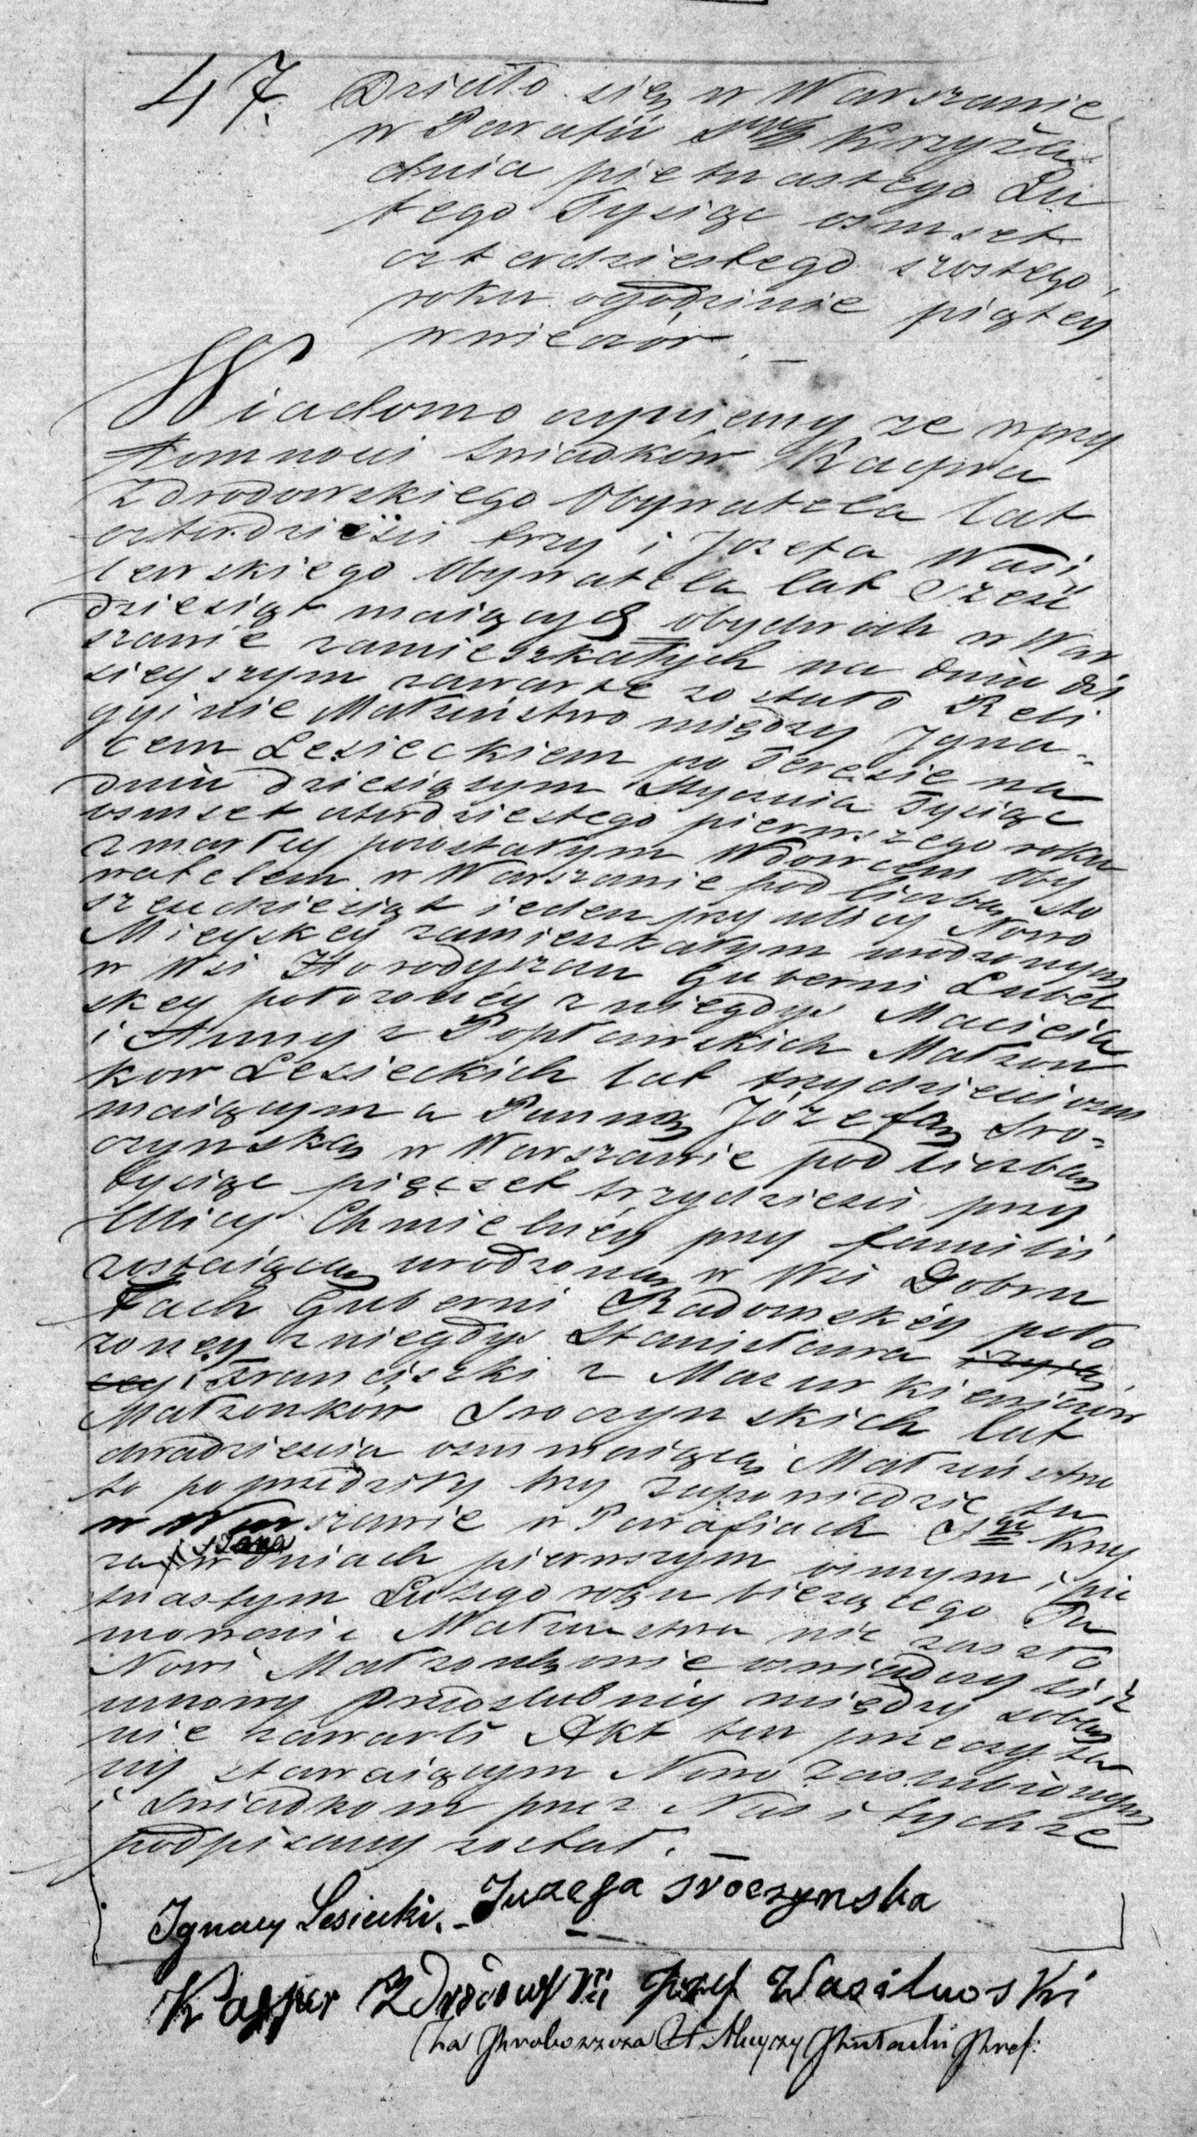 47. Działo się w Warszawie
w Parafii Stgo Krzyża
dnia piętnastego Lu
tego Tysiąc osmset
czterdziestego szostego
roku o godzinie piątey
w wieczór. —
Wiadomo czyniemy ze w przy
tomnosci swiadkow Kacpra
Zdrodowskiego Obywatela lat
czterdzieści trzy i Jozefa Wasi
lewskiego Obywatela lat Sześć
dziesiąt maiących obydwoch w War
szawie zamieszkałych na dniu dzi
sieyszym zawarte zostało Reli
giine Małżeństwo między Igna-
cem Lesieckiem po Teresie na
dniu dziesiątym Stycznia Tysiąc
osmset czterdziestego pierwszego roku
zmarłey pozostałym Wdowcem Oby
watelem w Warszawie pod liczbą sto
szesdziesiąt ieden przy ulicy Nowo
Mieyskey zamieszkałym urodzonym
w Wsi Horodyszczu Guberni Lubel
skey położoney z niegdys Macieia
i Anny z Popławskich Małżon
kow Lesieckich lat trzydzieści osm
maiącym a Panną Józefą Sro-
czynską w Warszawie pod liczbą
tysiąc pięcset trzydzieści przy
Ulicy Chmielnéy przy familii
zostaiącą urodzoną w Wsi Dobru
tach Guberni Radomskiéy poło
zoney z niegdys Stanisława
i Franciszki z Mazurkiewiczów
Małżonków Sroczynskich lat
dwadziescia osm maiącą Małżeństwo
to poprzedziły trzy zapowiedzie tu
w Warszawie w Parafiach Stgo Krzy
za w dniach pierwszym osmym i pię
tnastym Lutego roku bieżącego Ta
mowanie Małżeństwa nie zaszło
Nowi Małżonkowie oswiadczyli iż
umowy przedslubney między sobą
nie zawarli Akt ten przeczyta
ny stawaiącym Nowo Zaslubionym
i Swiadkom przez Nas i tychże
podpisany został. —
Ignacy Lesiecki. Juzefa Sroczynska
Kasper Zdrodowski Józef Wasilewski
Za Proboszcza